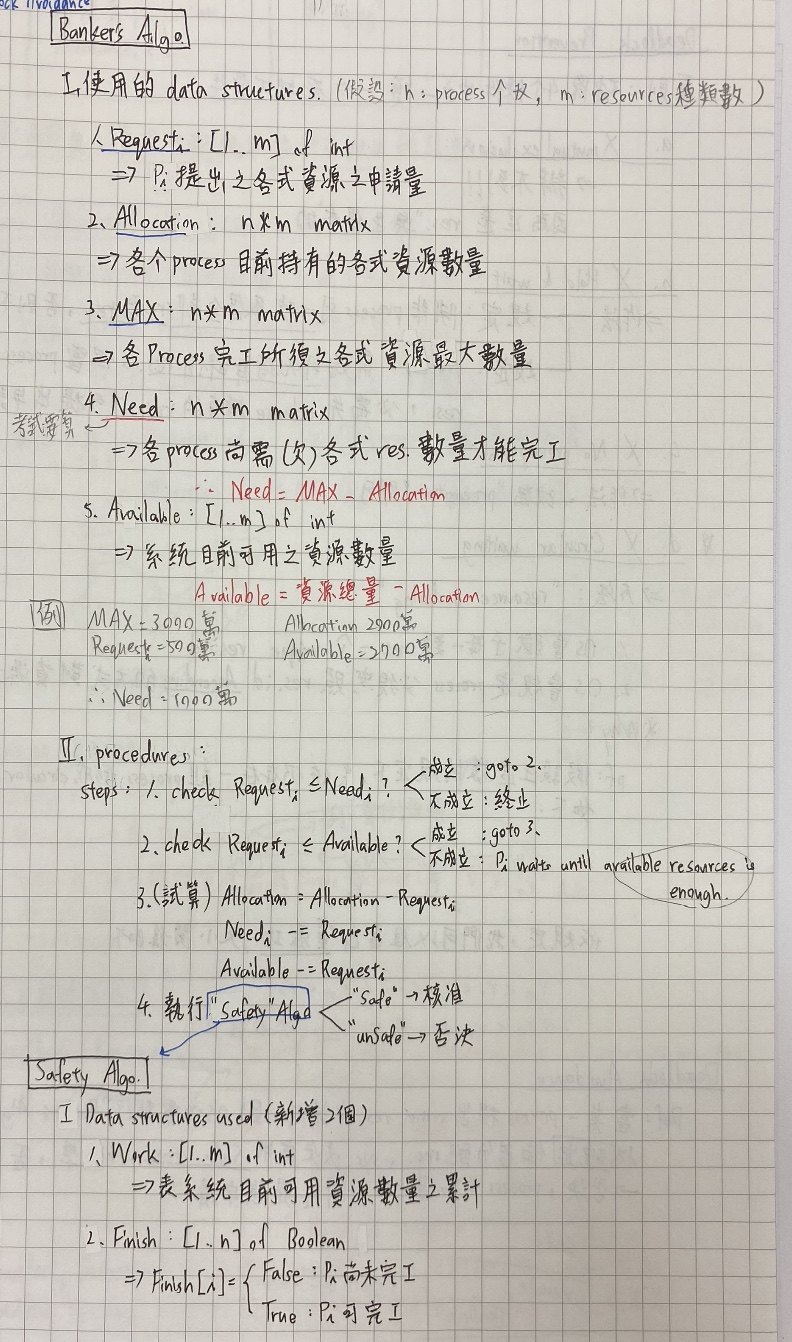 ock Avoidance
Banker's Algo.
I. 使用的 data structures. (假設: n: process 个奴, m: resources種類數)
1. Requesti : [1..m] of int
⇒ Pi 提出之各式資源之申請量
2. Allocation : n*m matrix
⇒ 各个 process 目前持有的各式資源數量
3. MAX : n*m matrix
⇒ 各 Process 完工所須之各式資源最大數量
4. Need : n*m matrix
考試要算
⇒ 各 process 尚需(欠)各式 res. 數量才能完工
∴ Need = MAX - Allocation
5. Available : [1..m] of int
⇒ 系統目前可用之資源數量
Available = 資源總量 - Allocation
例 MAX = 3000萬 Allocation 2900萬
Requesti = 500萬 Available = 2700萬
∴ Need = 1000萬
II. procedures :
steps : 1. check Requesti ≤ Needi ? 成立 : goto 2.
不成立 : 終止
2. check Requesti ≤ Available ? 成立 : goto 3.
不成立 : Pi waits until available resources is
enough.
3. (試算) Allocation = Allocation - Requesti
Needi -= Requesti
Available -= Requesti
4. 執行 "Safety" Algo "Safe" → 核准
"unSafe" → 否決
Safety Algo.
I Data structures used (新增2個)
1. Work : [1..m] of int
⇒ 表系統目前可用資源數量之累計
2. Finish : [1..n] of Boolean
⇒ Finish[i] = { False : Pi 尚未完工
True : Pi 可完工